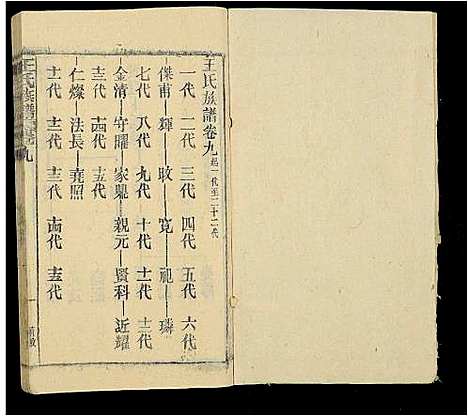 王氏族譜卷九起一代至二十二代
一代 二代 三代 四代 五代 六代
傑甫 輝 政 寛 祀 璘
七代 八代 九代 十代 十一代 十二代
金清 守曜 家縣 親元 賢科 近耀
十三代 十四代 十五代
仁燦 法長 堯照
十一代 十二代 十三代 十四代 十五代
王氏族譜 卷九 一